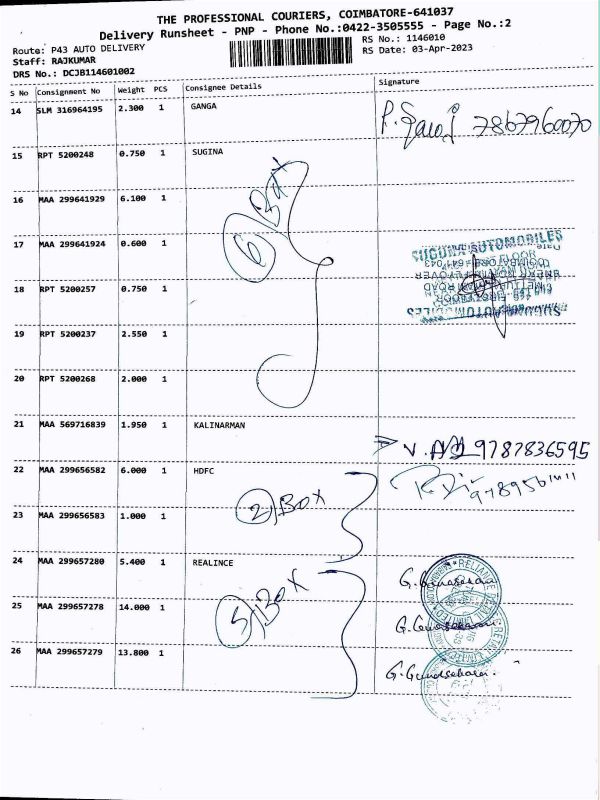 THE PROFESSIONAL COURIERS, COIMBATORE-641037
Delivery Runsheet - PNP - Phone No.:0422-3505555 - Page No.:2
Route: P43 AUTO DELIVERY
RS No.: 1146010
Staff: RAJKUMAR
RS Date: 03-Apr-2023
DRS No.: DCJB114601002
S No Consignment No Weight PCS Consignee Details Signature
14 SLM 316964195 2.300 1 GANGA
7867960070
15 RPT 5200248 0.750 1 SUGINA
16 MAA 299641929 6.100 1
6) Box
17 MAA 299641924 0.600 1
SUGUNA AUTOMOBILES
18 RPT 5200257 0.750 1
19 RPT 5200237 2.550 1
20 RPT 5200268 2.000 1
21 MAA 569716839 1.950 1 KALINARMAN
9787836595
22 MAA 299656582 6.000 1 HDFC
2) Box
23 MAA 299656583 1.000 1
24 MAA 299657280 5.400 1 REALINCE
G. Gunasekaran
25 MAA 299657278 14.000 1
Box
G. Gunasekaran
26 MAA 299657279 13.800 1
G. Gunasekaran